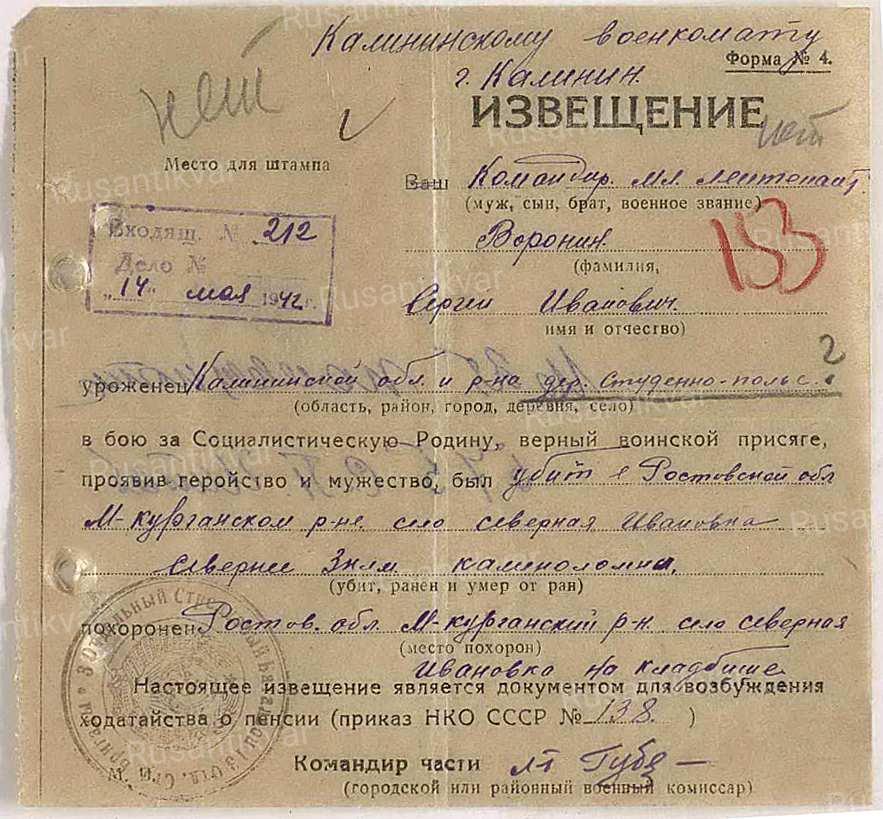 Калининскому военкомату
Форма № 4.
г. Калинин.
нет
ИЗВЕЩЕНИЕ
нет
Место для штампа
Ваш Командир мл. лейтенант
(муж, сын, брат, военное звание)
Входящ. № 212
Дело №
"14" мая 1942 г.
Воронин
153
(фамилия,
Сергей Иванович.
имя и отчество)
уроженец Калининской обл. и р-на дер. Студенно-поль с. ?
(область, район, город, деревня, село)
в бою за Социалистическую Родину, верный воинской присяге,
проявив геройство и мужество, был убит в Ростовской обл
М-курганском р-не село северная Ивановка
севернее 3 клм. каменоломни.
(убит, ранен и умер от ран)
похоронен Ростов. обл. М-курганский р-н село северная
(место похорон)
Ивановка на кладбище
Настоящее извещение является документом для возбуждения
ходатайства о пенсии (приказ НКО СССР № 138. )
М. П.
Командир части лт Губ
(городской или районный военный комиссар)
Rusantikvar